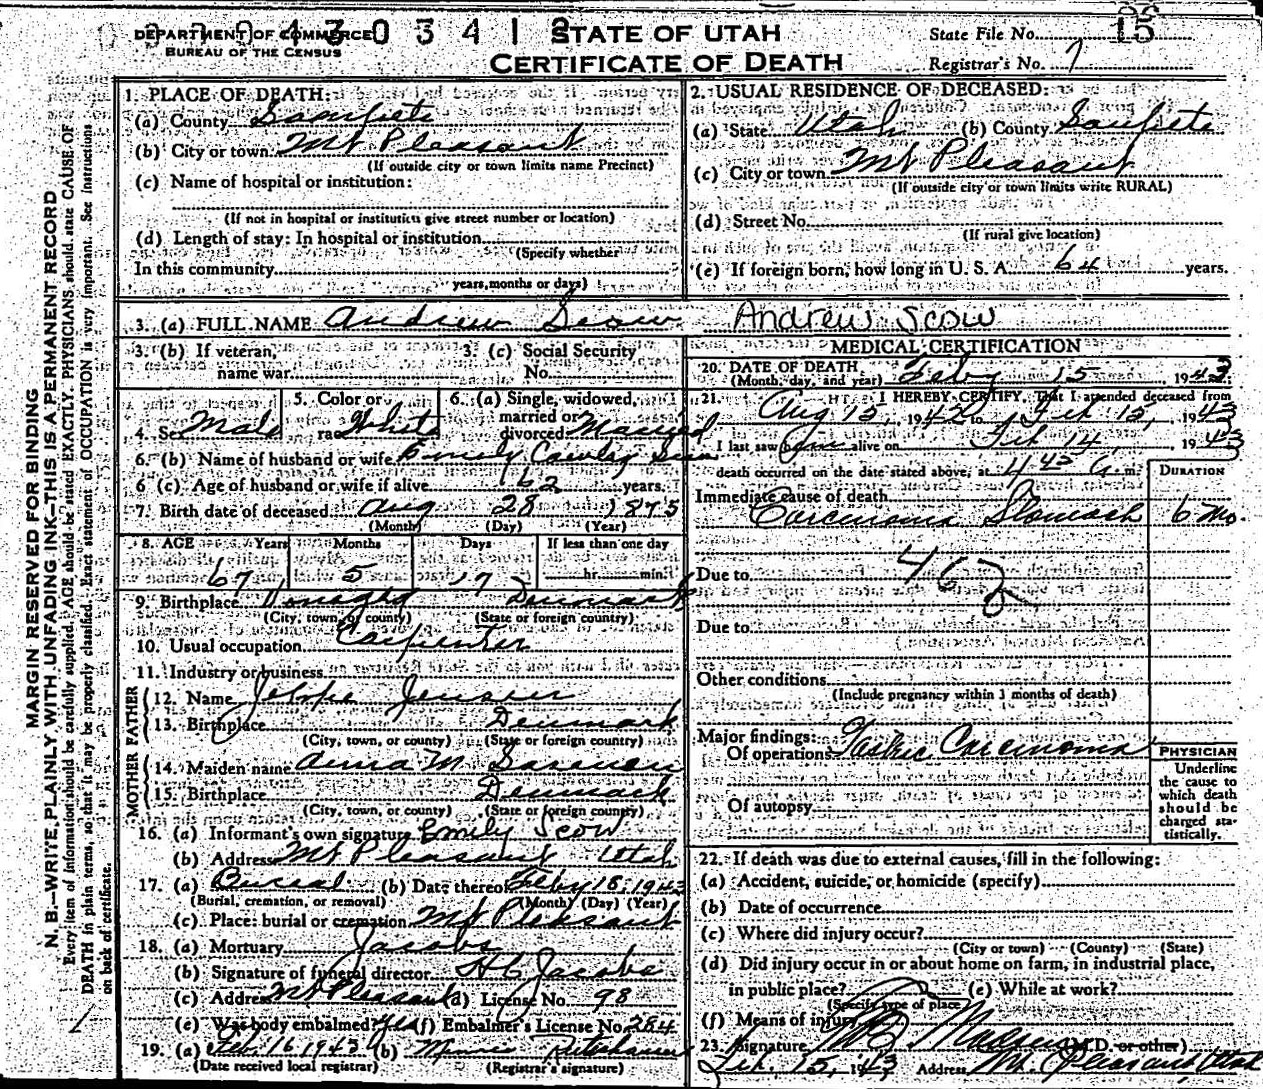 DEPARTMENT OF COMMERCE
BUREAU OF THE CENSUS
STATE OF UTAH
CERTIFICATE OF DEATH
State File No. 15
Registrar's No. 7
MARGIN RESERVED FOR BINDING
N. B.—WRITE PLAINLY WITH UNFADING INK—THIS IS A PERMANENT RECORD
Every item of information should be carefully supplied. AGE should be stated EXACTLY. PHYSICIANS should state CAUSE OF
DEATH in plain terms, so that it may be properly classified. Exact statement of OCCUPATION is very important. See instructions
on back of certificate.
1. PLACE OF DEATH:
(a) County Sanpete
(b) City or town Mt Pleasant
(If outside city or town limits name Precinct)
(c) Name of hospital or institution:
(If not in hospital or institution give street number or location)
(d) Length of stay: In hospital or institution
(Specify whether
In this community
years, months or days)
2. USUAL RESIDENCE OF DECEASED:
(a) State Utah (b) County Sanpete
(c) City or town Mt Pleasant
(If outside city or town limits write RURAL)
(d) Street No.
(If rural give location)
(e) If foreign born, how long in U. S. A. 64 years.
3. (a) FULL NAME Andrew Scow Andrew Scow
3. (b) If veteran, name war
3. (c) Social Security No.
4. Sex Male
5. Color or race White
6. (a) Single, widowed, married or divorced Married
6. (b) Name of husband or wife Emely
6 (c) Age of husband or wife if alive 62 years.
7. Birth date of deceased Aug 28 1875
(Month) (Day) (Year)
8. AGE Years Months Days If less than one day
67 5 17 hr. min.
9. Birthplace Denmark
(City, town, or county) (State or foreign country)
10. Usual occupation Carpenter
11. Industry or business
FATHER
12. Name Jeppe Jensen
13. Birthplace Denmark
(City, town, or county) (State or foreign country)
MOTHER
14. Maiden name Anna M.
15. Birthplace Denmark
(City, town, or county) (State or foreign country)
16. (a) Informant's own signature Emily Scow
(b) Address Mt Pleasant Utah
17. (a) Burial (b) Date thereof Feby 18, 1943
(Burial, cremation, or removal) (Month) (Day) (Year)
(c) Place: burial or cremation Mt Pleasant
18. (a) Mortuary Jacobs
(b) Signature of funeral director H C Jacobs
(c) Address Mt Pleasant (d) License No. 98
(e) Was body embalmed? Yes (f) Embalmer's License No. 284
19. (a) Feb. 16 1943 (b)
(Date received local registrar) (Registrar's signature)
MEDICAL CERTIFICATION
20. DATE OF DEATH
(Month, day, and year) Feby 15, 1943
21. I HEREBY CERTIFY, That I attended deceased from
Aug 15, 1942 to Feb 15, 1943
I last saw him alive on Feb 14, 1943
death occurred on the date stated above, at 4 45 A. m.
DURATION
Immediate cause of death
Carcinoma Stomach 6 Mo.
Due to
Due to
Other conditions
(Include pregnancy within 3 months of death)
Major findings:
Of operations Gastric Carcinoma
Of autopsy
PHYSICIAN
Underline
the cause to
which death
should be
charged sta-
tistically.
22. If death was due to external causes, fill in the following:
(a) Accident, suicide, or homicide (specify)
(b) Date of occurrence
(c) Where did injury occur?
(City or town) (County) (State)
(d) Did injury occur in or about home on farm, in industrial place,
in public place? (e) While at work?
(Specify type of place)
(f) Means of injury
23. Signature (M.D. or other)
Feb. 15, 1943 Address Mt. Pleasant Utah